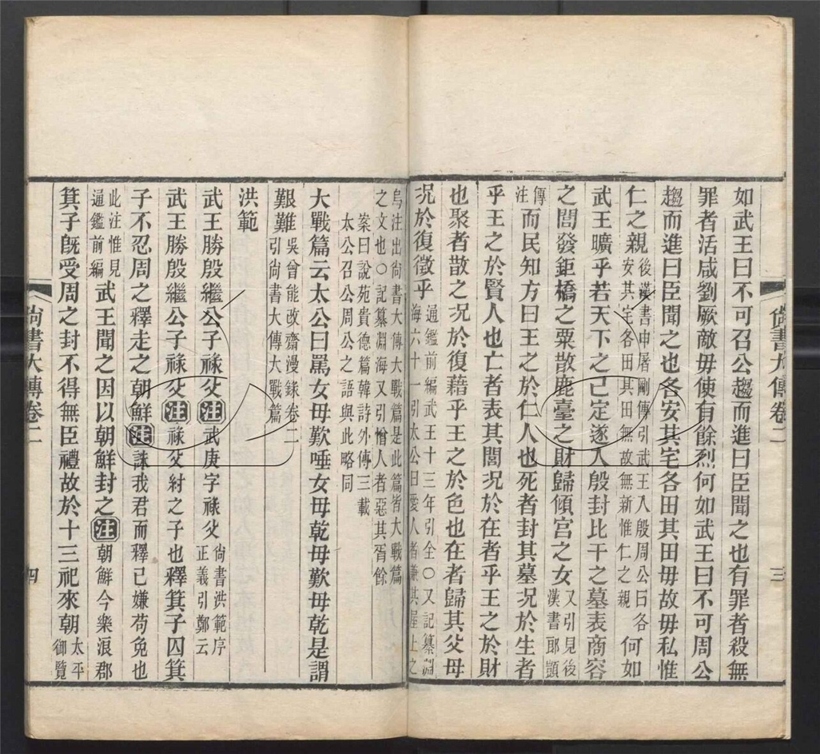 如武王曰不可召公趨而進曰臣聞之也有罪者殺無
罪者活咸劉厥敵毋使有餘烈何如武王曰不可周公
趨而進曰臣聞之也各安其宅各田其田毋故毋私惟
仁之親後漢書申屠剛傳引武王入殷周公曰各安其宅各田其田無故無新惟仁之親何如
武王曠乎若天下之已定遂入殷封比干之墓表商容
之閭發鉅橋之粟散鹿臺之財歸傾宮之女又引見後漢書郎顗
傳注而民知方曰王之於仁人也死者封其墓況於生者
乎王之於賢人也亡者表其閭況於在者乎王之於財
也聚者散之況於復藉乎王之於色也在者歸其父母
況於復徵乎通鑑前編武王十三年引全〇又記纂淵海六十一引太公曰愛人者兼其屋上之
尚書大傳卷二
三
烏注出尚書大傳大戰篇是此篇皆大戰篇之文也〇記纂淵海又引憎人者惡其胥餘
案曰說苑貴德篇韓詩外傳三載太公召公周公之語與此略同
大戰篇云太公曰罵女毋歎唾女毋乾毋歎毋乾是謂
艱難吳曾能改齋漫錄卷二引尚書大傳大戰篇
洪範
武王勝殷繼公子祿父注武庚字祿父尚書洪範序正義引鄭云
武王勝殷繼公子祿父注祿父紂之子也釋箕子囚箕
子不忍周之釋走之朝鮮注誅我君而釋己嫌苟免也
此注惟見通鑑前編武王聞之因以朝鮮封之注朝鮮今樂浪郡
箕子旣受周之封不得無臣禮故於十三祀來朝太平御覽
尚書大傳卷二
四